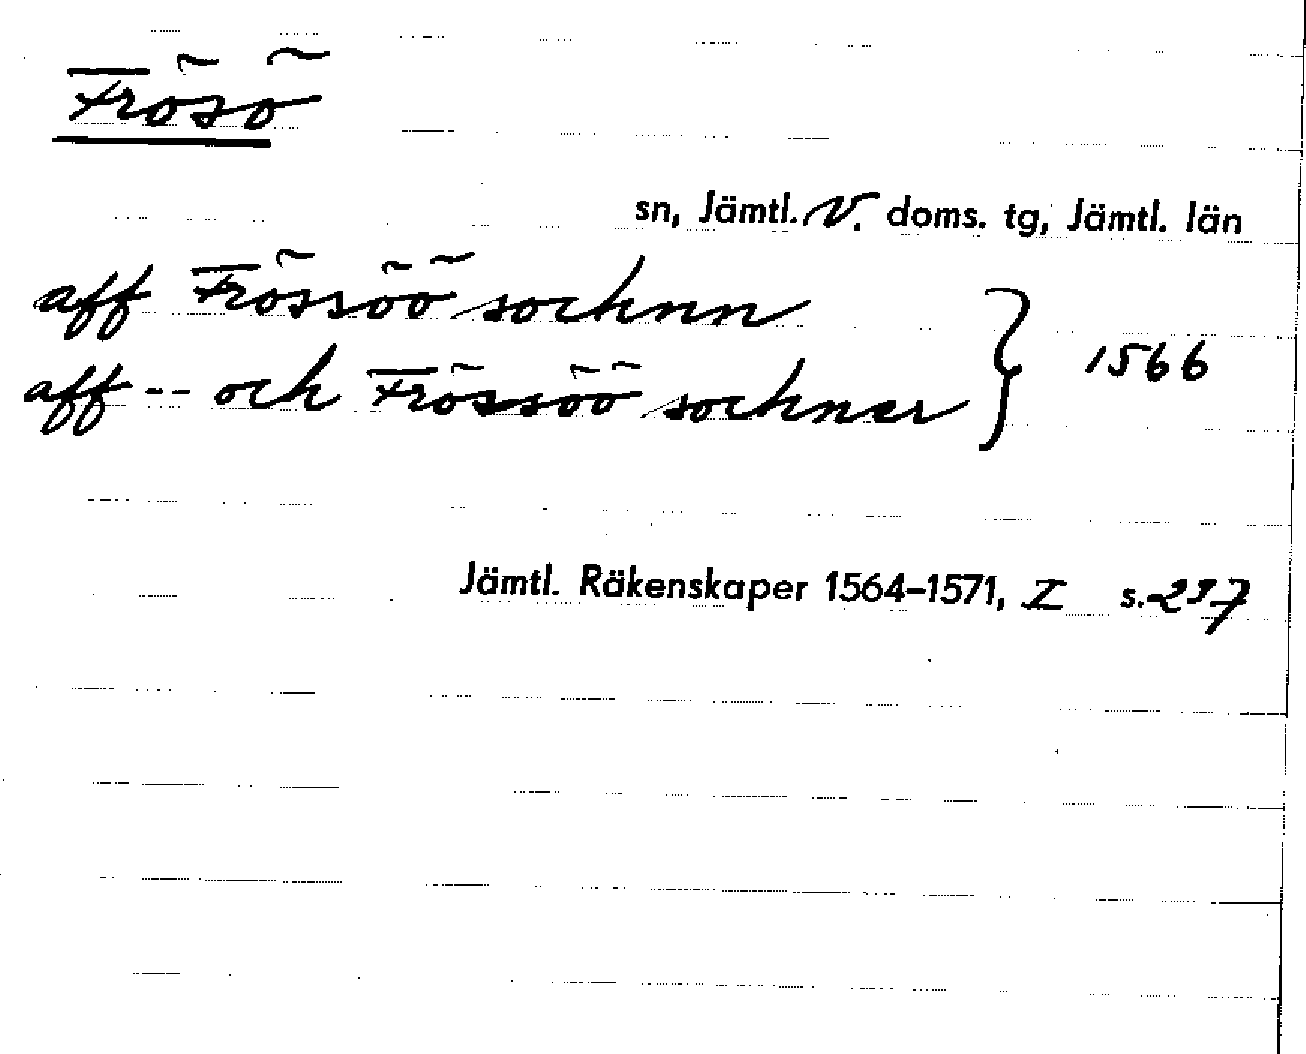 Frösö
sn, Jämtl. V. doms. tg, Jämtl. län
aff Frössöö socknn
aff -- och Frössöö sockner } 1566
Jämtl. Räkenskaper 1564–1571, I s. 237